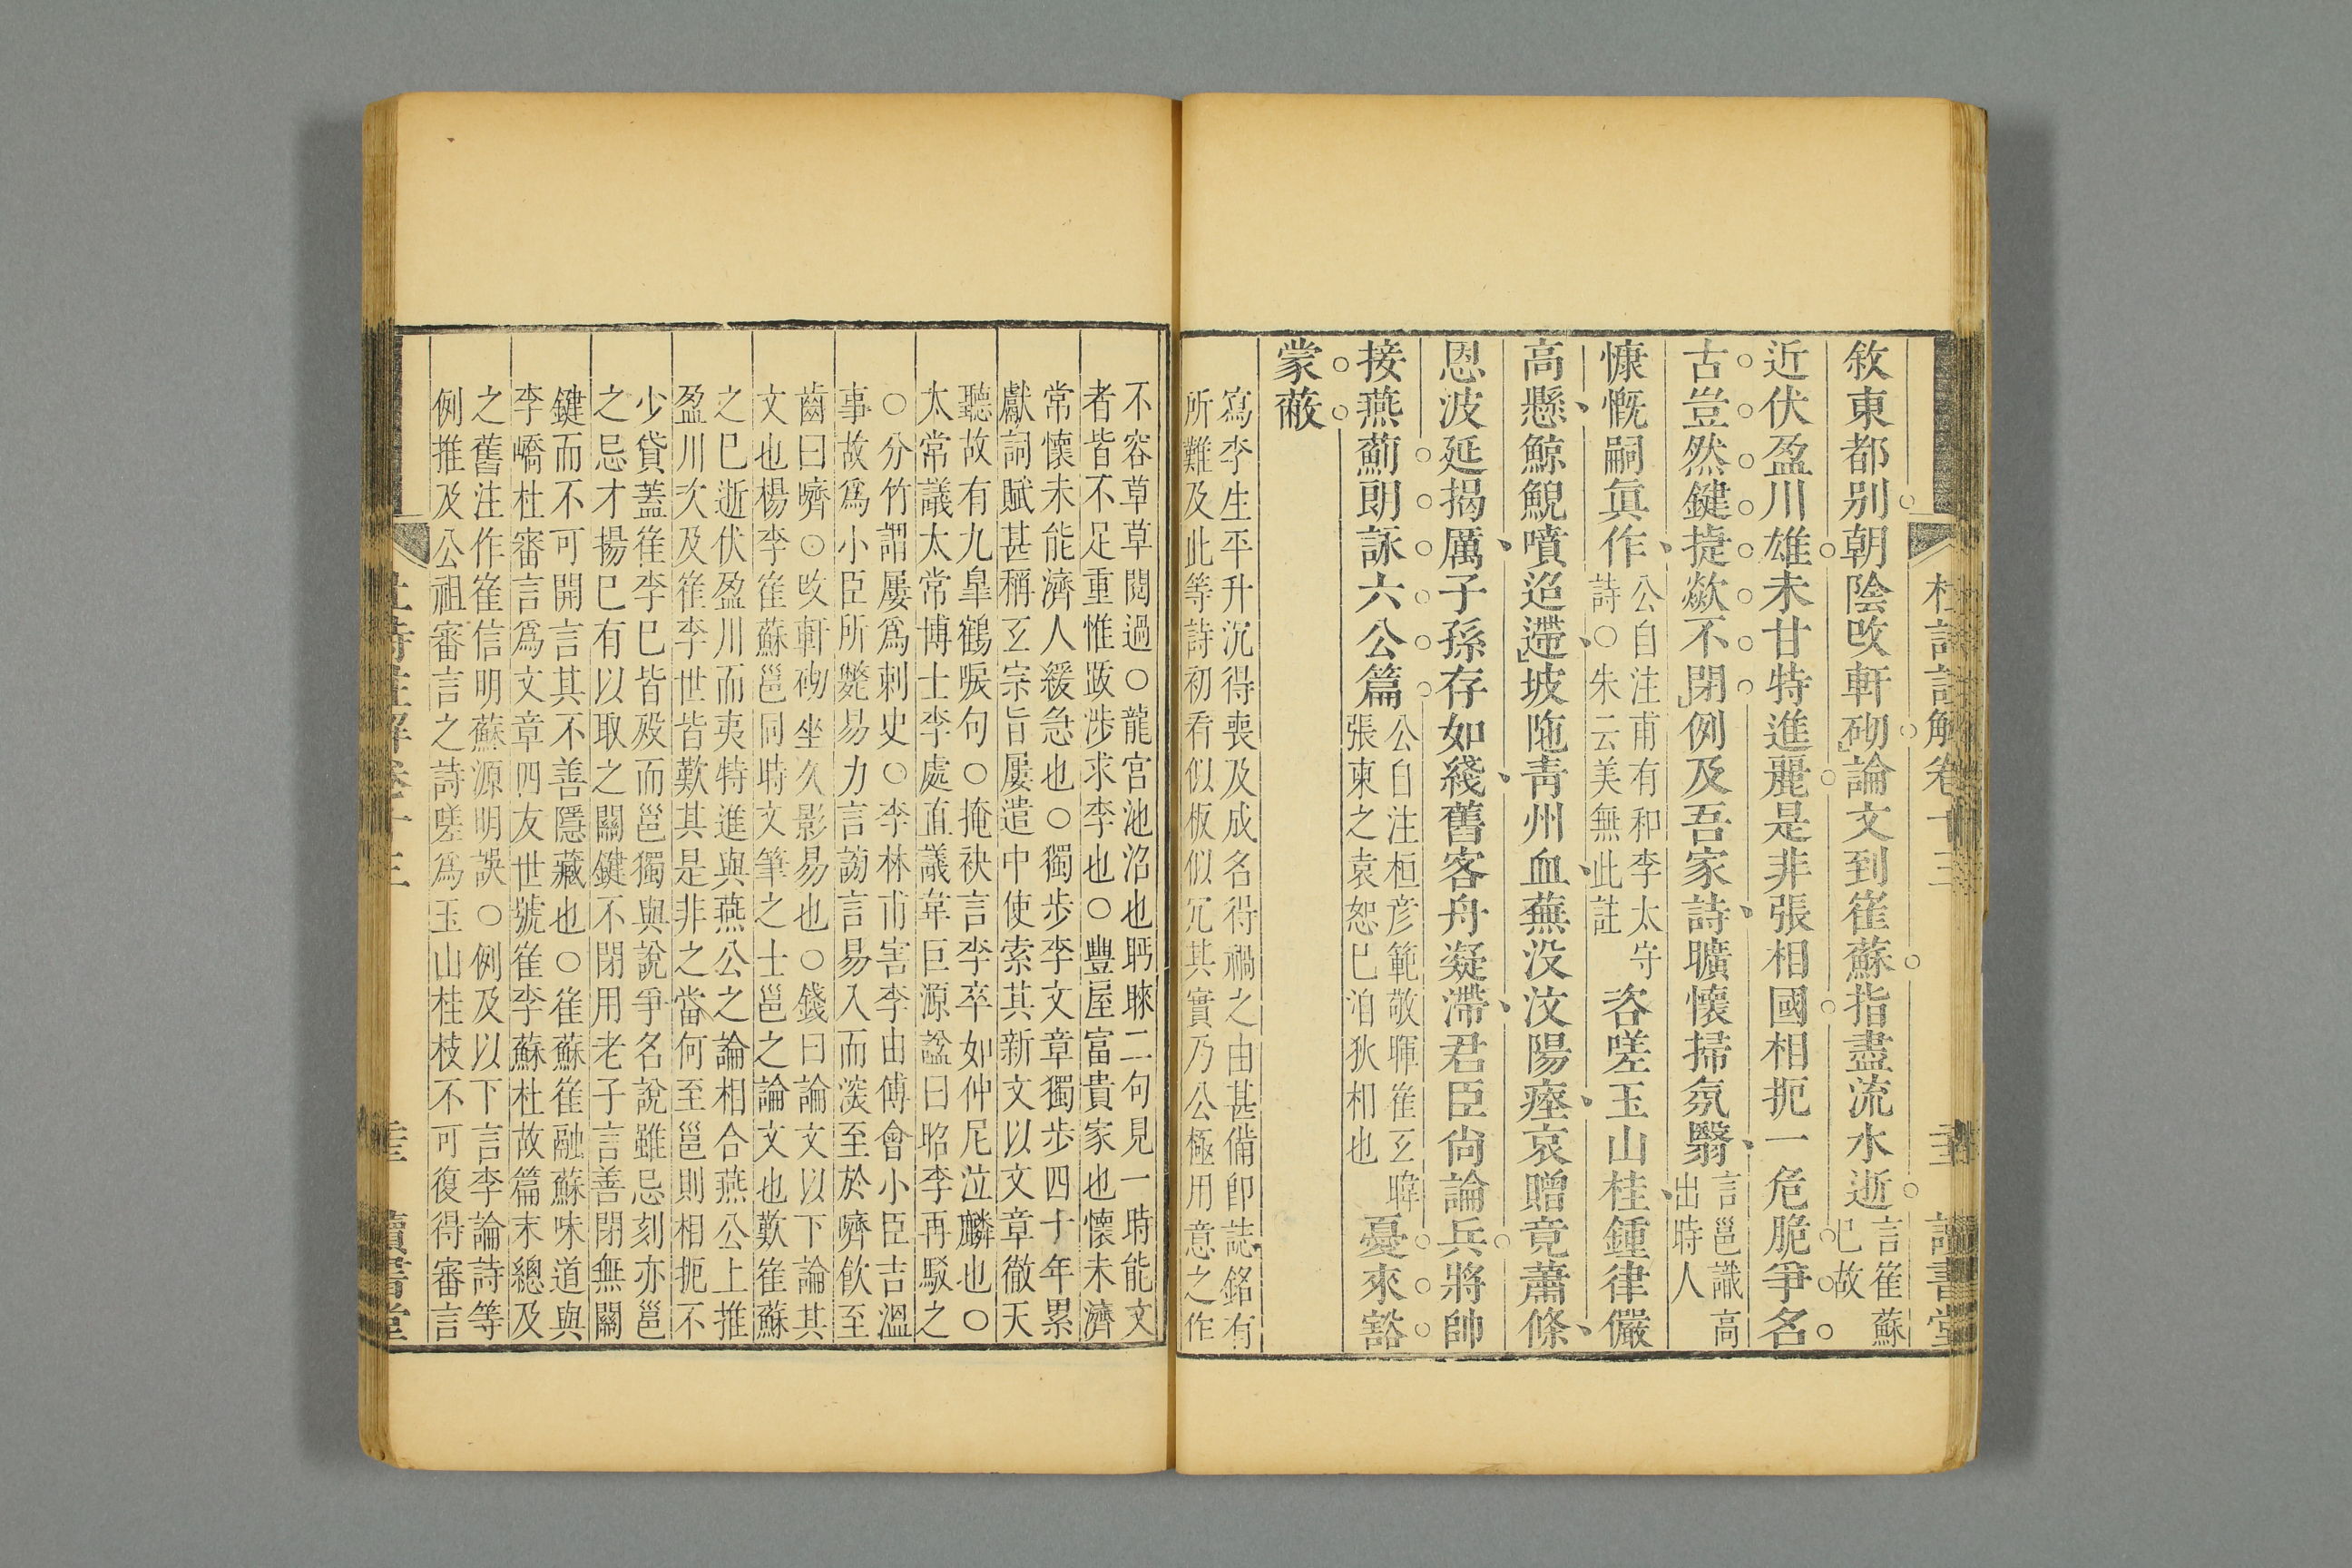 敘東都別朝陰改軒砌論文到崔蘇指盡流水逝
言崔蘇
已故
近伏盈川雄未甘特進麗是非張相國相扼一危脆爭名
古豈然鍵捷歘不閉例及吾家詩曠懷掃氛翳
言邕識高
出時人
慷慨嗣眞作
公自注甫有和李太守
詩○朱云美無此註
咨嗟玉山桂鍾律儼
高懸鯨鯢噴迢遰坡陁靑州血蕪没汶陽瘞哀贈竟蕭條
恩波延揭厲子孫存如綫舊客舟凝滯君臣尙論兵將帥
接燕薊朗詠六公篇
公自注桓彦範敬暉崔玄暐
張東之袁恕巳洎狄相也
憂來豁
蒙蔽
寫李生平升沉得喪及成名得禍之由甚備卽誌銘有
所難及此等詩初看似板似冗其實乃公極用意之作
杜詩註解卷十三
讀書堂
不容草草閱過○龍宮池沼也眄睞二句見一時能文
者皆不足重惟跋涉求李也○豐屋富貴家也懷未濟
常懷未能濟人緩急也○獨步李文章獨步四十年累
獻詞賦甚稱玄宗旨屢遣中使索其新文以文章徹天
聽故有九皐鶴唳句○掩袂言李卒如仲尼泣麟也○
太常議太常博士李處直議韋巨源諡曰昭李再駁之
○分竹謂屢爲刺史○李林甫害李由傅會小臣吉溫
事故爲小臣所斃易力言謗言易入而淡至於嚌飮至
齒曰嚌○改軒砌坐久影易也○錢曰論文以下論其
文也楊李崔蘇邕同時文筆之士邕之論文也歎崔蘇
之巳逝伏盈川而夷特進與燕公之論相合燕公上推
盈川次及崔李世皆歎其是非之當何至邕則相扼不
少貸蓋崔李巳皆殁而邕獨與說爭名說雖忌刻亦邕
之忌才揚巳有以取之關鍵不閉用老子言善閉無關
鍵而不可開言其不善隱藏也○崔蘇崔融蘇味道與
李嶠杜審言爲文章四友世號崔李蘇杜故篇末總及
之舊注作崔信明蘇源明誤○例及以下言李論詩等
例推及公祖審言之詩嗟爲玉山桂枝不可復得審言
讀書堂